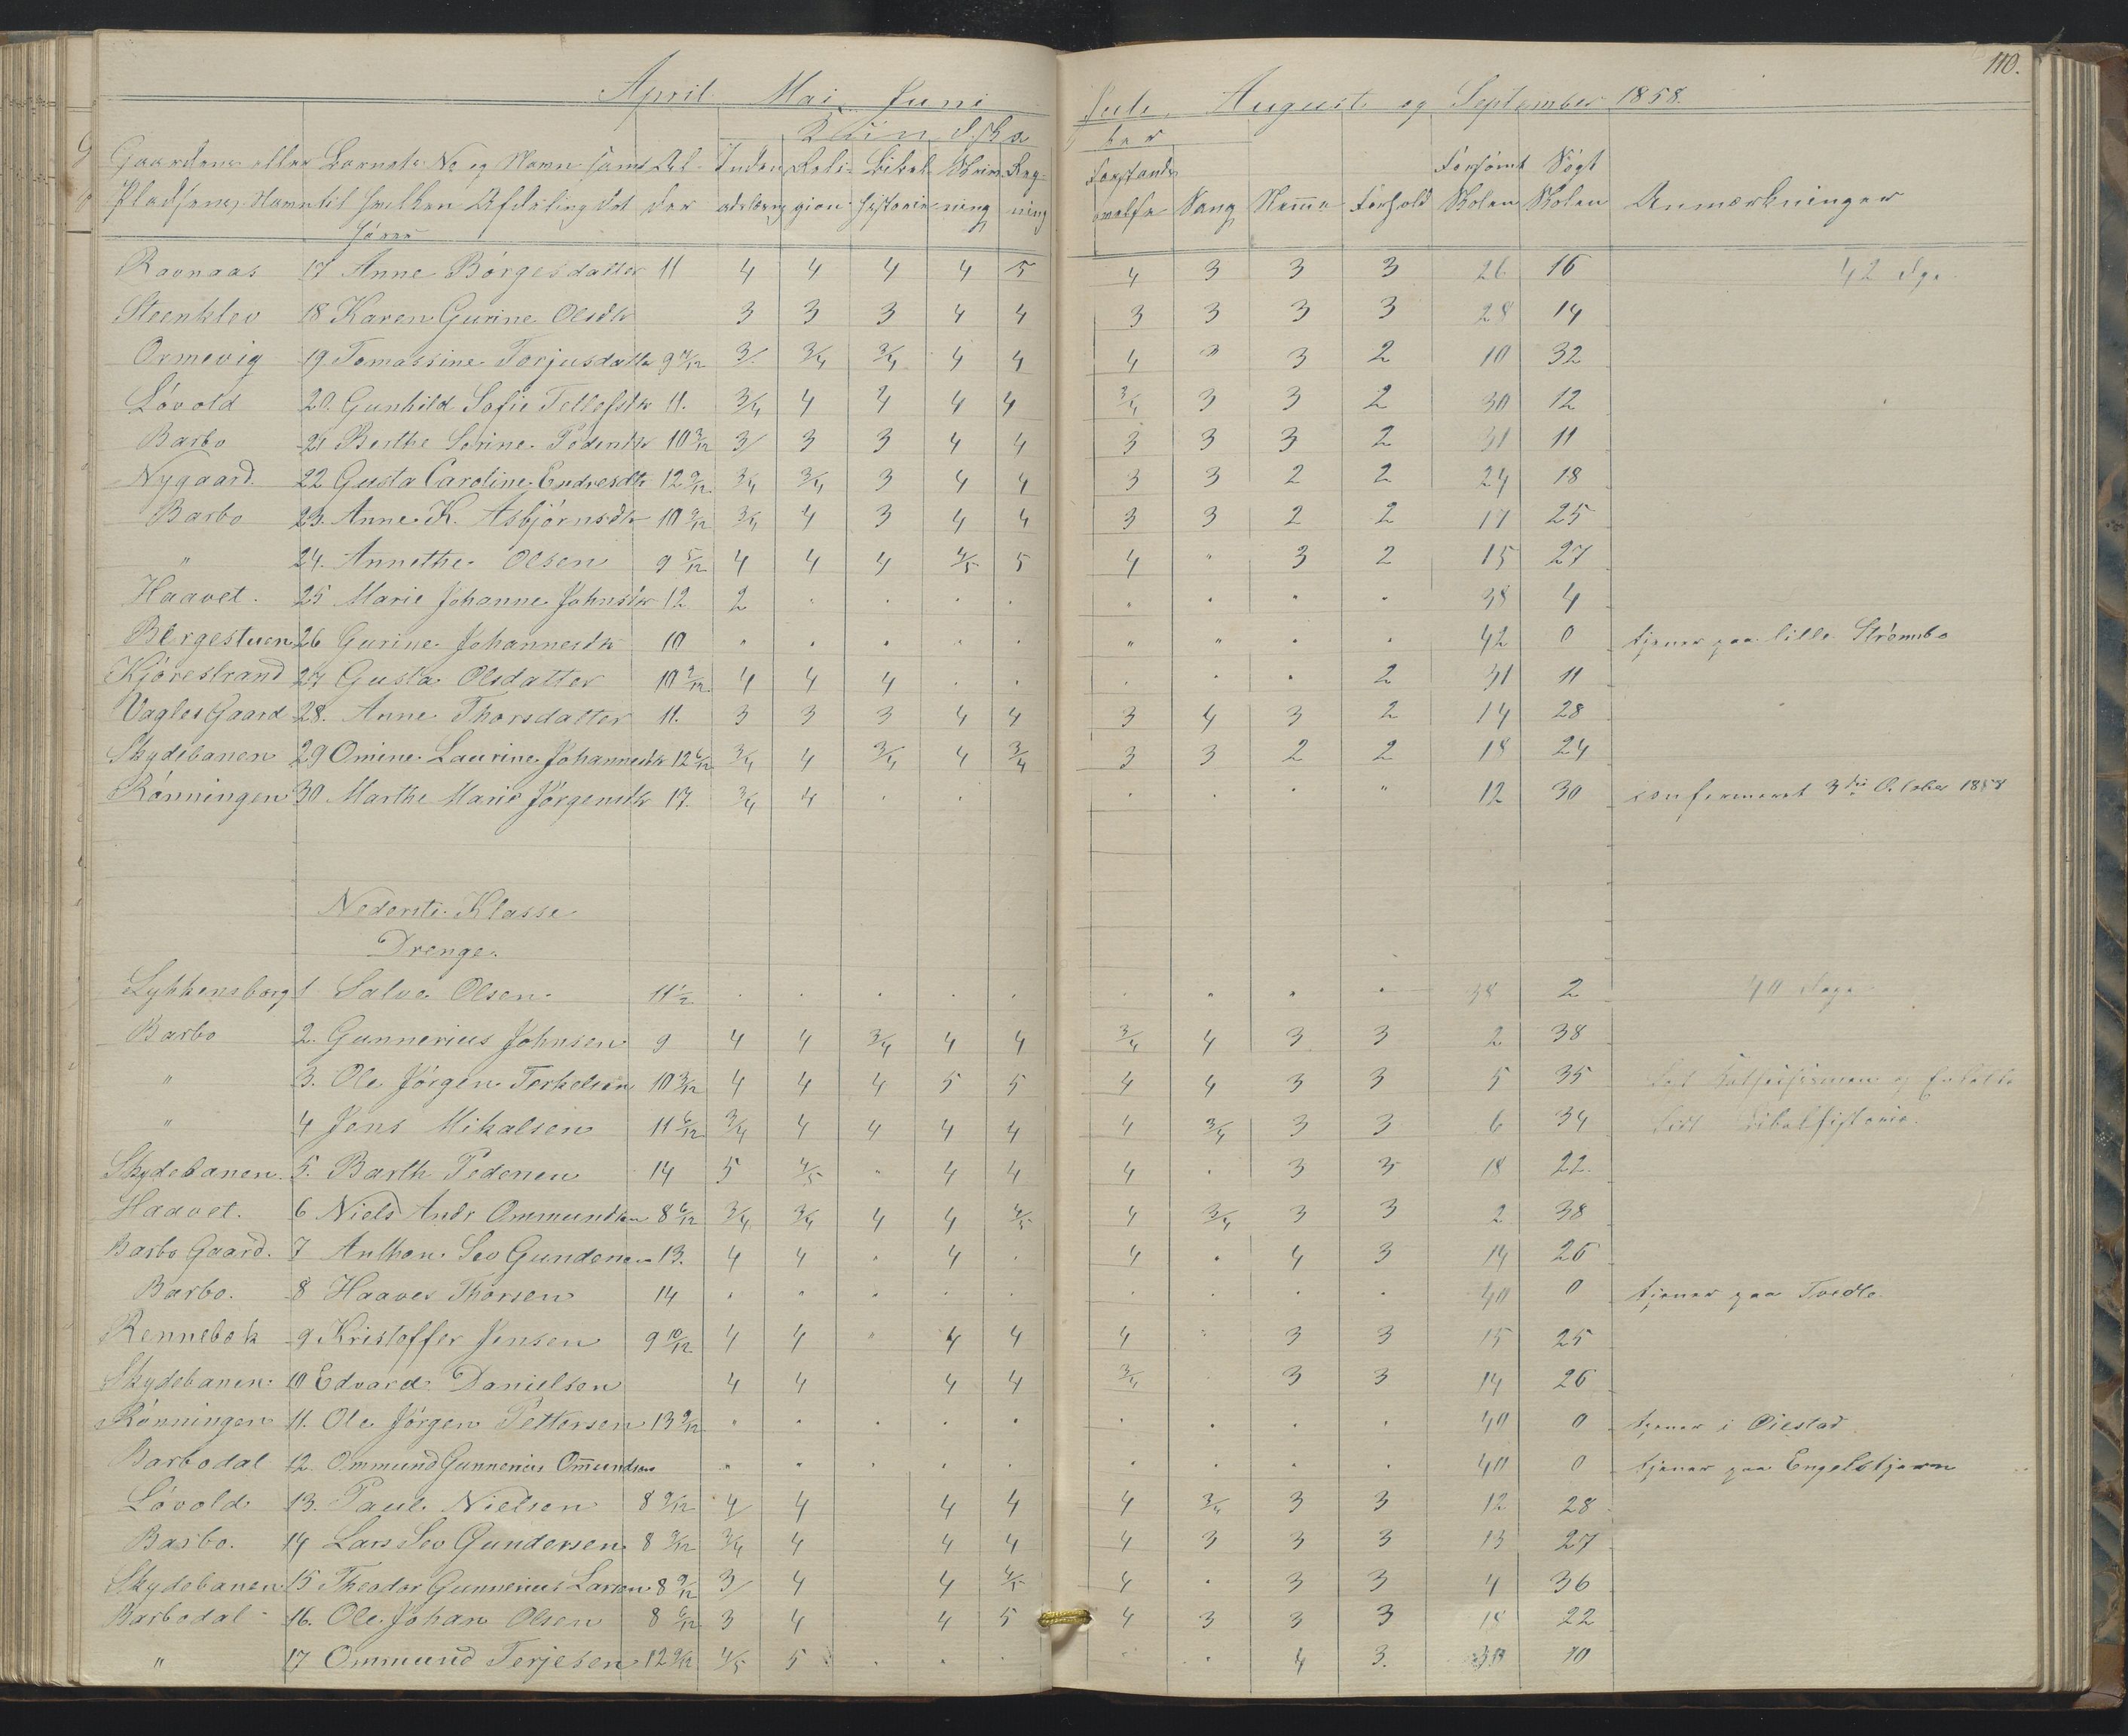 110.
April Mai Juni Juli August og September 1858.
Gaardens eller Barnets No og Navn samt Al- Inden Reli- Bibel- Skriv- Reg- Forstands Forsømt Søgt
Pladsenes Navn til hvilken Afdeling det der adslæsng gion historie ning ning øvelse Sang Nemme Forhold Skolen Skolen Anmærkninger
hører
Ravnaas 17 Anne Börgesdatter 11 4 4 4 4 5 4 3 3 3 26 16 42 Dge
Steenklev 18 Karen Gurine Olsdtr 3 3 3 4 4 3 3 3 3 28 14
Ormevig 19. Tomassine Torjusdatter 9 3/ 3/4 3/4 4 4 4 3 3 2 10 32
Lövold 20. Gunhild Sofie Tellefsdtr 11. 3/4 4 4 4 4 3/4 3 3 2 30 12
Barbo 21 Berthe Serine Pedersdtr 10 3/12 3/ 3 3 4 4 3 3 3 2 31 11
Nygaard. 22 Gusta Caroline Endresdtr 12 9/12 3/4 3/4 3 4 4 3 3 2 2 24 18
Barbo 23. Anne K. Asbjörnsdtr 10 9/12 3/4 4 3 4 4 3 3 2 2 17 25
" 24. Annethe Olsen 9 5/12 4 4 4 4/5 5 4 " 3 2 15 27
Haavet. 25 Marie Johanne Johnsdtr 12 2 . . . . " . . . 38 4
Bergestuen 26 Gurine Johannesdtr 10 " . . . . " " . . 42 0 tjener paa lille Strömbo
Kjörestrand 27 Gusta Olsdatter 10 3/12 4 4 4 . . . . . 2 31 11
Vagles Gaard 28. Anne Thorsdatter 11. 3 3 3 4 4 3 4 3 2 14 28
Skydebanen 29 Omine Laurine Johannesdtr 12 6/12 3/4 4 3/4 4 3/4 3 3 2 2 18 24
Rönningen 30 Marthe Marie Jörgensdtr 17. 3/4 4 . . . . . " 12 30 confirmeret 3die October 1858
Nederste Klasse
Drenge.
Lykkensborg 1 Salve Olsen 11 1/2 . . . . . . . . . 38 2 40 Dage
Barbo 2. Gunnerius Johnsen 9 4 4 3/4 4 4 3/4 4 3 3 2 38
" 3. Ole Jörgen Terkelsen 10 3/12 4 4 4 5 5 4 4 3 3 5 35
" 4 Jens Mikalsen 11 6/12 3/4 4 4 4 4 4 3/4 3 3 6 34
Skydebanen. 5. Barth Pedersen 14 5 4/5 " 4 4 4 . 3 3 18 22.
Haavet. 6 Niels Andr Ommundsen 8 6/12 3/4 3/4 4 4 4/5 4 3/4 3 3 2 38
Barbo Gaard. 7 Anthon Sev Gundersen 13. 4 4 . 4 . 4 . 4 3 14 26
Barbo. 8 Haaver Thorsen 14 . " . . . . . . . 40 0 tjener paa Tvedte
Rennebek 9 Kristoffer Jensen 9 10/12 4 4 " 4 4 4 " 3 3 15 25
Skydebanen. 10 Edvard Danielsen 4 4 4 4 3/4 . 3 3 14 26
Rönningen 11. Ole Jörgen Pettersen 13 9/12 . . . . . . . . . 40 0 tjener i Öiestad
Barbodal 12. Ommund Gunnerius Om̅undsen . . . . . . . . . 40 0 tjener paa Engelstjern
Lövold 13. Paul Nielsen 8 9/12 4/ 4 4 4 4 3/4 3 3 12 28
Barbo. 14 Lars Sev Gundersen 8 3/12 3/4 4 4 4 4 3 3 3 13 27
Skydebanen 15 Theodor Gunnerius Larsen 8 9/12 3/ 4 4 4/5 4 . 3 3 4 36
Barbodal 16. Ole Johan Olsen 8 6/12 3 4 4 5 4 3 3 3 18 22
" 17 Ommund Terjesen 12 9/12 4/5 5 . . . . . 4 3. 30 10